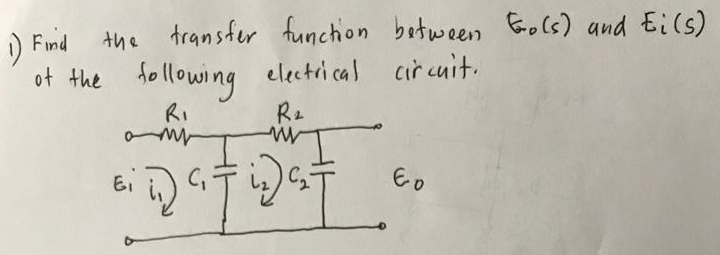 1) Find the transfer function between Eo(s) and Ei(s)
of the following electrical circuit.
R1 R2
Ei i1 C1 i2 C2 Eo